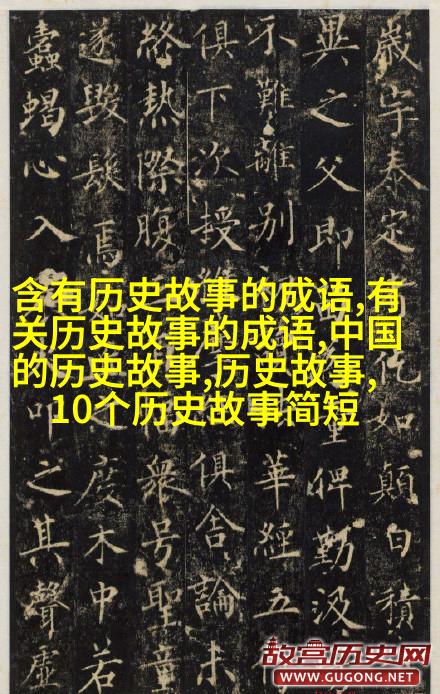 歲宇泰定仡如顛白積
異之父即俾勤汲
不難離別華經五
俱下次授俱舍論未
終熱際腹衆号聖童
遂毀髮焉度木中若
蠹蝎心入叩之其聲虛
含有历史故事的成语,有
关历史故事的成语,中国
的历史故事,历史故事,
10个历史故事简短
故宫历史网
WWW.GUGONG.NET